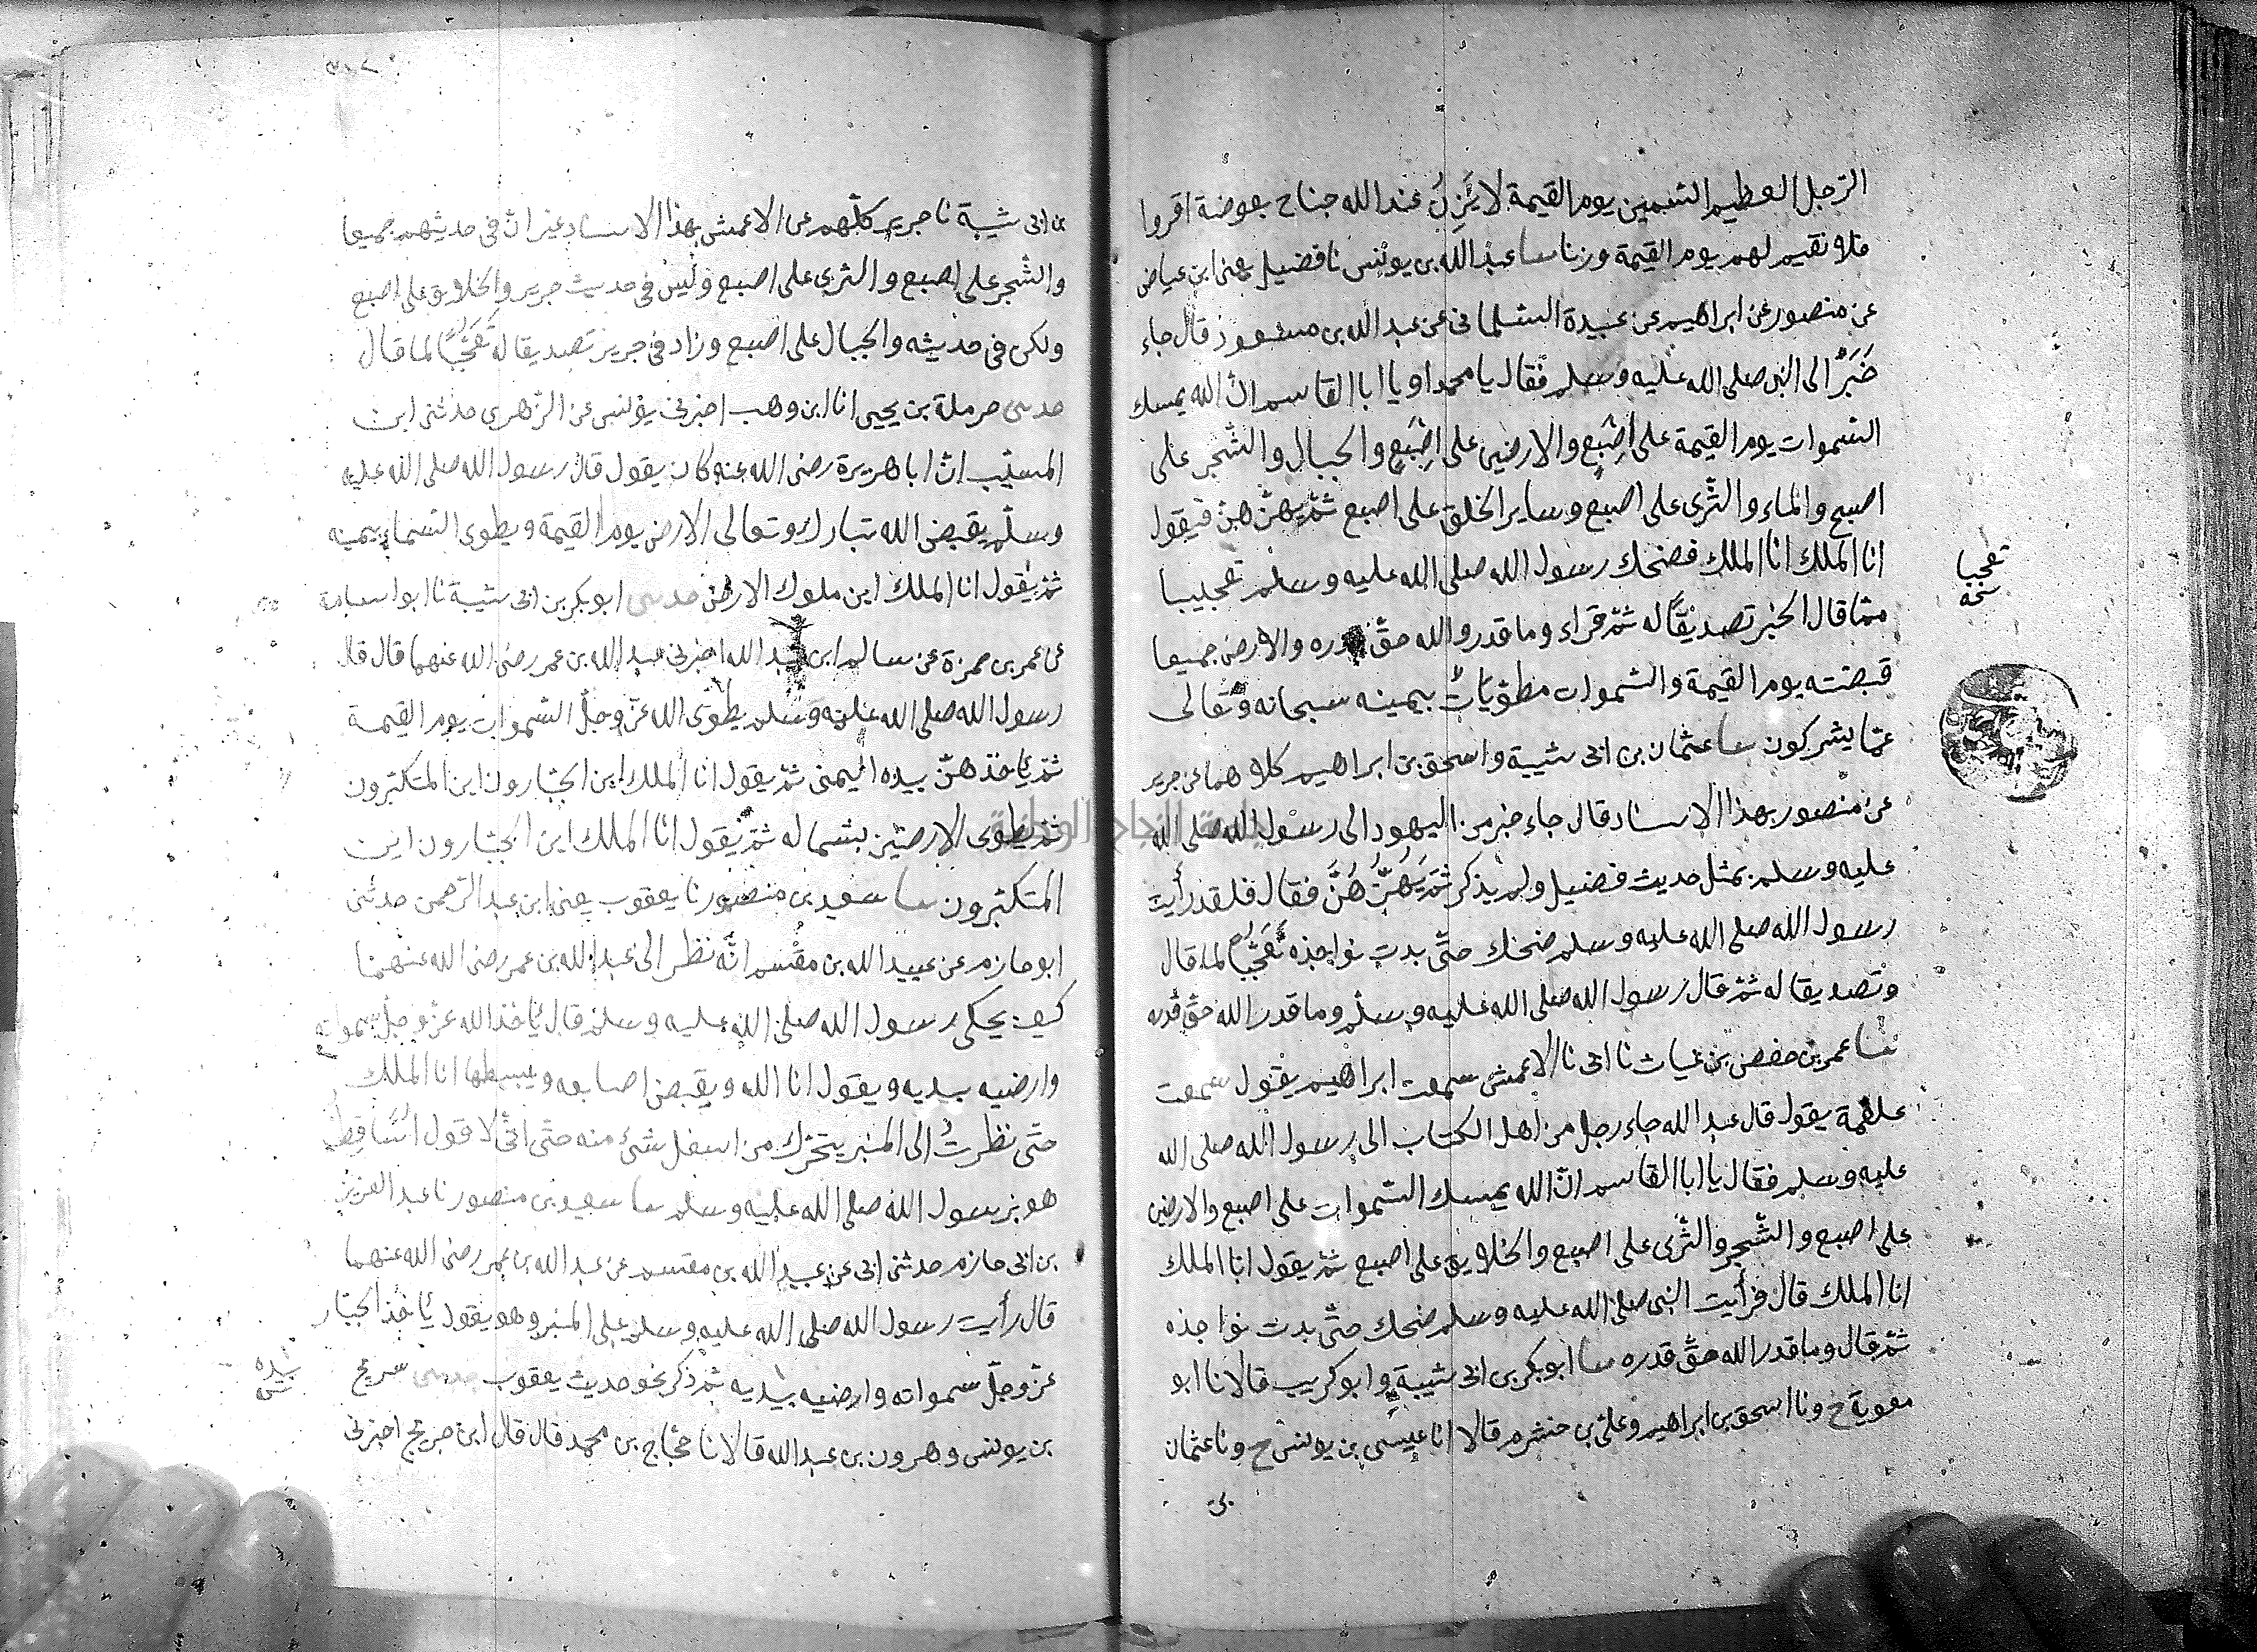 الرّجل العظيم السّمين يوم القيمة لا يَزِنُ عند الله جناح بعوضة اقروا
فلا نقيم لهم يوم القيمة وزنا نا عبد الله بن يونس نا فضيل يعنى ابن عياض
عن منصور عن ابراهيم عن عبيدة السّلمانى عن عبد الله بن مسعود قال جاء
حَبَرٌ الى النبى صلى الله عليه وسلم فقال يا محمد او يا ابا القاسم انّ الله يمسك
السّموات يوم القيمة على اِصْبَعٍ والارضين على اِصْبَعٍ والجبال والشّجر على
اصبع والماء والثّرى على اصبع وساير الخلق على اصبع ثمّ يهزّهنّ فيقول
انا الملك انا الملك فضحك رسول الله صلى الله عليه وسلم تعجيبا
تعجبا
نسخه
ممّا قال الحبر تصديقًا له ثمّ قراء وما قدروا الله حقّ قدره والارض جميعا
قبضته يوم القيمة والسّموات مطويّاتٌ بيمينه سبحانه وتعالى
عمّا يشركون نا عثمان بن ابى شيبة واسحق بن ابراهيم كلاهما عن جرير
عن منصور بهذا الاسناد قال جاء حبر من اليهود الى رسول الله صلى الله
عليه وسلم بمثل حديث فضيل ولم يذكر ثمّ يَهُزُّهُنَّ فقال فلقد رأيت
رسول الله صلى الله عليه وسلم ضحك حتّى بدت نواجذه تَعَجُّبًا لما قال
وتصديقا له ثمّ قال رسول الله صلى الله عليه وسلم وما قدروا الله حقّ قدره
نا عمر بن حفص بن غياث نا ابى نا الاعمش سمعت ابراهيم يقول سمعت
علقمة يقول قال عبد الله جاء رجل من اهل الكتاب الى رسول الله صلى الله
عليه وسلم فقال يا ابا القاسم انّ الله يمسك السّموات على اصبع والارضين
على اصبع والشّجر والثّرى على اصبع والخلايق على اصبع ثمّ يقول انا الملك
انا الملك قال فرأيت النبى صلى الله عليه وسلم ضحك حتّى بدت نواجذه
ثمّ قال وما قدروا الله حقّ قدره نا ابو بكر بن ابى شيبة وابو كريب قالا نا ابو
معوية ح ونا اسحق بن ابراهيم وعلى بن خشرم قالا انا عيسى بن يونس ح ونا عثمان
بن
بن ابى شيبة نا جرير كلّهم عن الاعمش بهذا الاسناد غير انّ فى حديثهم جميعا
والشّجر على اصبع والثّرى على اصبع وليس فى حديث جرير والخلايق على اصبع
ولكن فى حديثه والجبال على اصبع وزاد فى جرير تصديقا له تَعَجُّبًا لما قال
حدثنى حرملة بن يحيى انا ابن وهب اخبرنى يونس عن الزّهرى حدثنى ابن
المسيّب انّ ابا هريرة رضى الله عنه كان يقول قال رسول الله صلى الله عليه
وسلّم يقبض الله تبارك وتعالى الارض يوم القيمة ويطوى السّماء بيمينه
ثمّ يقول انا الملك اين ملوك الارض حدثنى ابو بكر بن ابى شيبة نا ابو اسامة
عن عمر بن حمزة عن سالم ابن عبد الله اخبرنى عبد الله بن عمر رضى الله عنهما قال قال
رسول الله صلى الله عليه وسلم يطوى الله عزّ وجلّ السّموات يوم القيمة
ثمّ يأخذهنّ بيده اليمنى ثمّ يقول انا الملك اين الجبّارون اين المتكبّرون
ثمّ يطوى الارضين بشماله ثمّ يقول انا الملك اين الجبّارون اين
المتكبّرون نا سعيد بن منصور نا يعقوب يعنى ابن عبد الرّحمن حدثنى
ابو حازم عن عبيد الله بن مقْسم انّه نظر الى عبد الله بن عمر رضى الله عنهما
كيف يحكى رسول الله صلى الله عليه وسلم قال يأخذ الله عزّ وجلّ سمواته
وارضيه بيديه ويقول انا الله ويقبض اصابعه ويبسطها انا الملك
حتّى نظرتُ الى المنبر يتحرّك من اسفل شئ منه حتّى انّى لاقول اَسَاقِطٌ
هو برسول الله صلى الله عليه وسلم نا سعيد بن منصور نا عبد العزيز
بن ابى حازم حدثنى ابى عن عبيد الله بن مقسم عن عبد الله بن عمر رضى الله عنهما
قال رأيت رسول الله صلى الله عليه وسلم على المنبر وهو يقول يأخذ الجبّار
عزّ وجلّ سمواته وارضيه بيديه ثمّ ذكر نحو حديث يعقوب حدثنى سريج
بيده
بن يونس وهرون بن عبد الله قالا نا حجّاج بن محمد قال قال ابن جريج اخبرنى